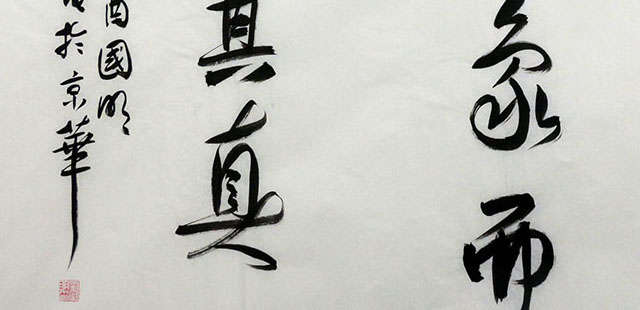 象而
其真
酉國明
於京華